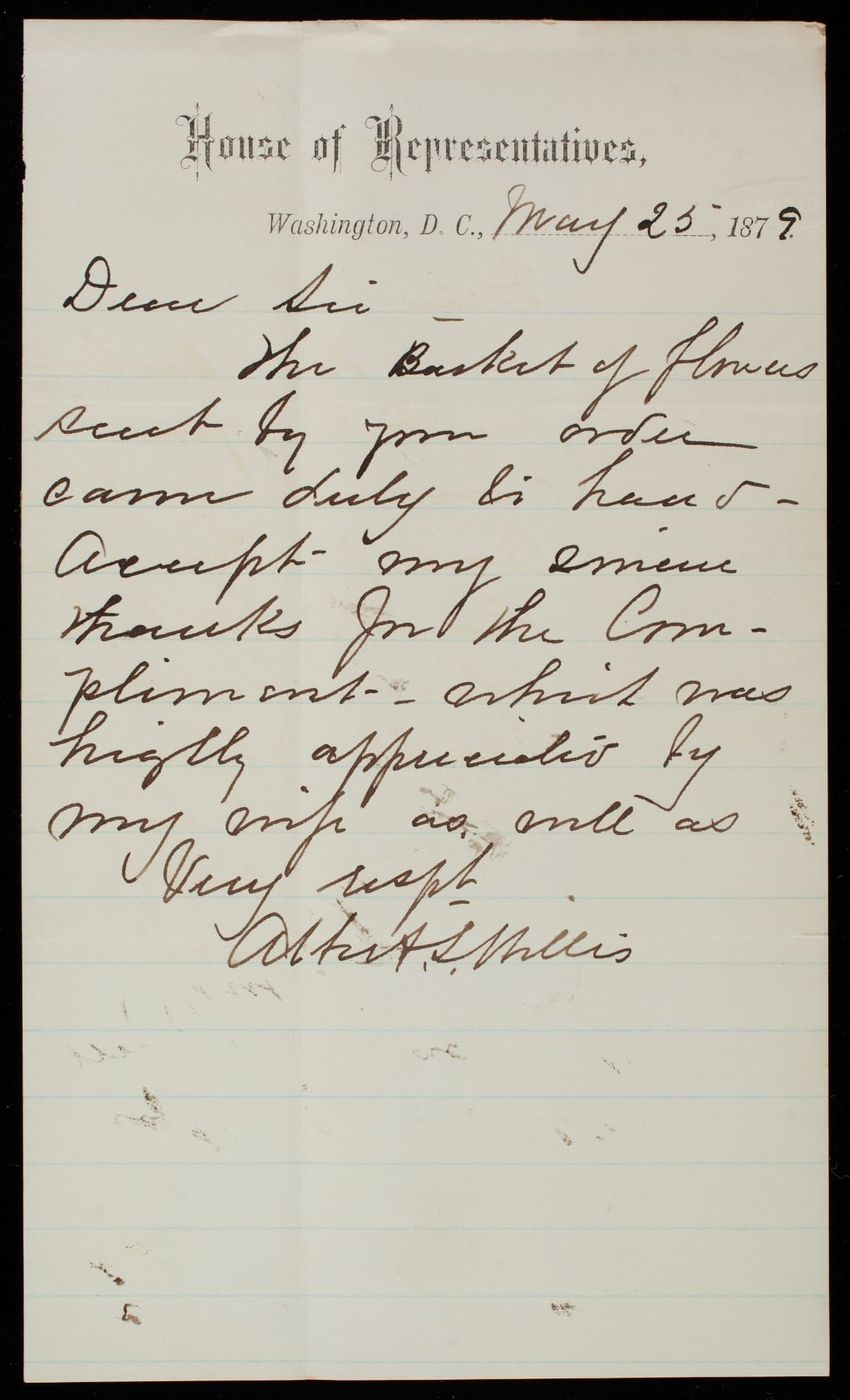 House of Representatives,
Washington, D. C., May 25, 1879.
Dear Sir
The Basket of flowers
sent by your order
came duly to hand -
Accept my sincere
thanks for the Com-
pliment - which was
highly appreciated by
my wife as well as
Very respt
Albert S. Willis